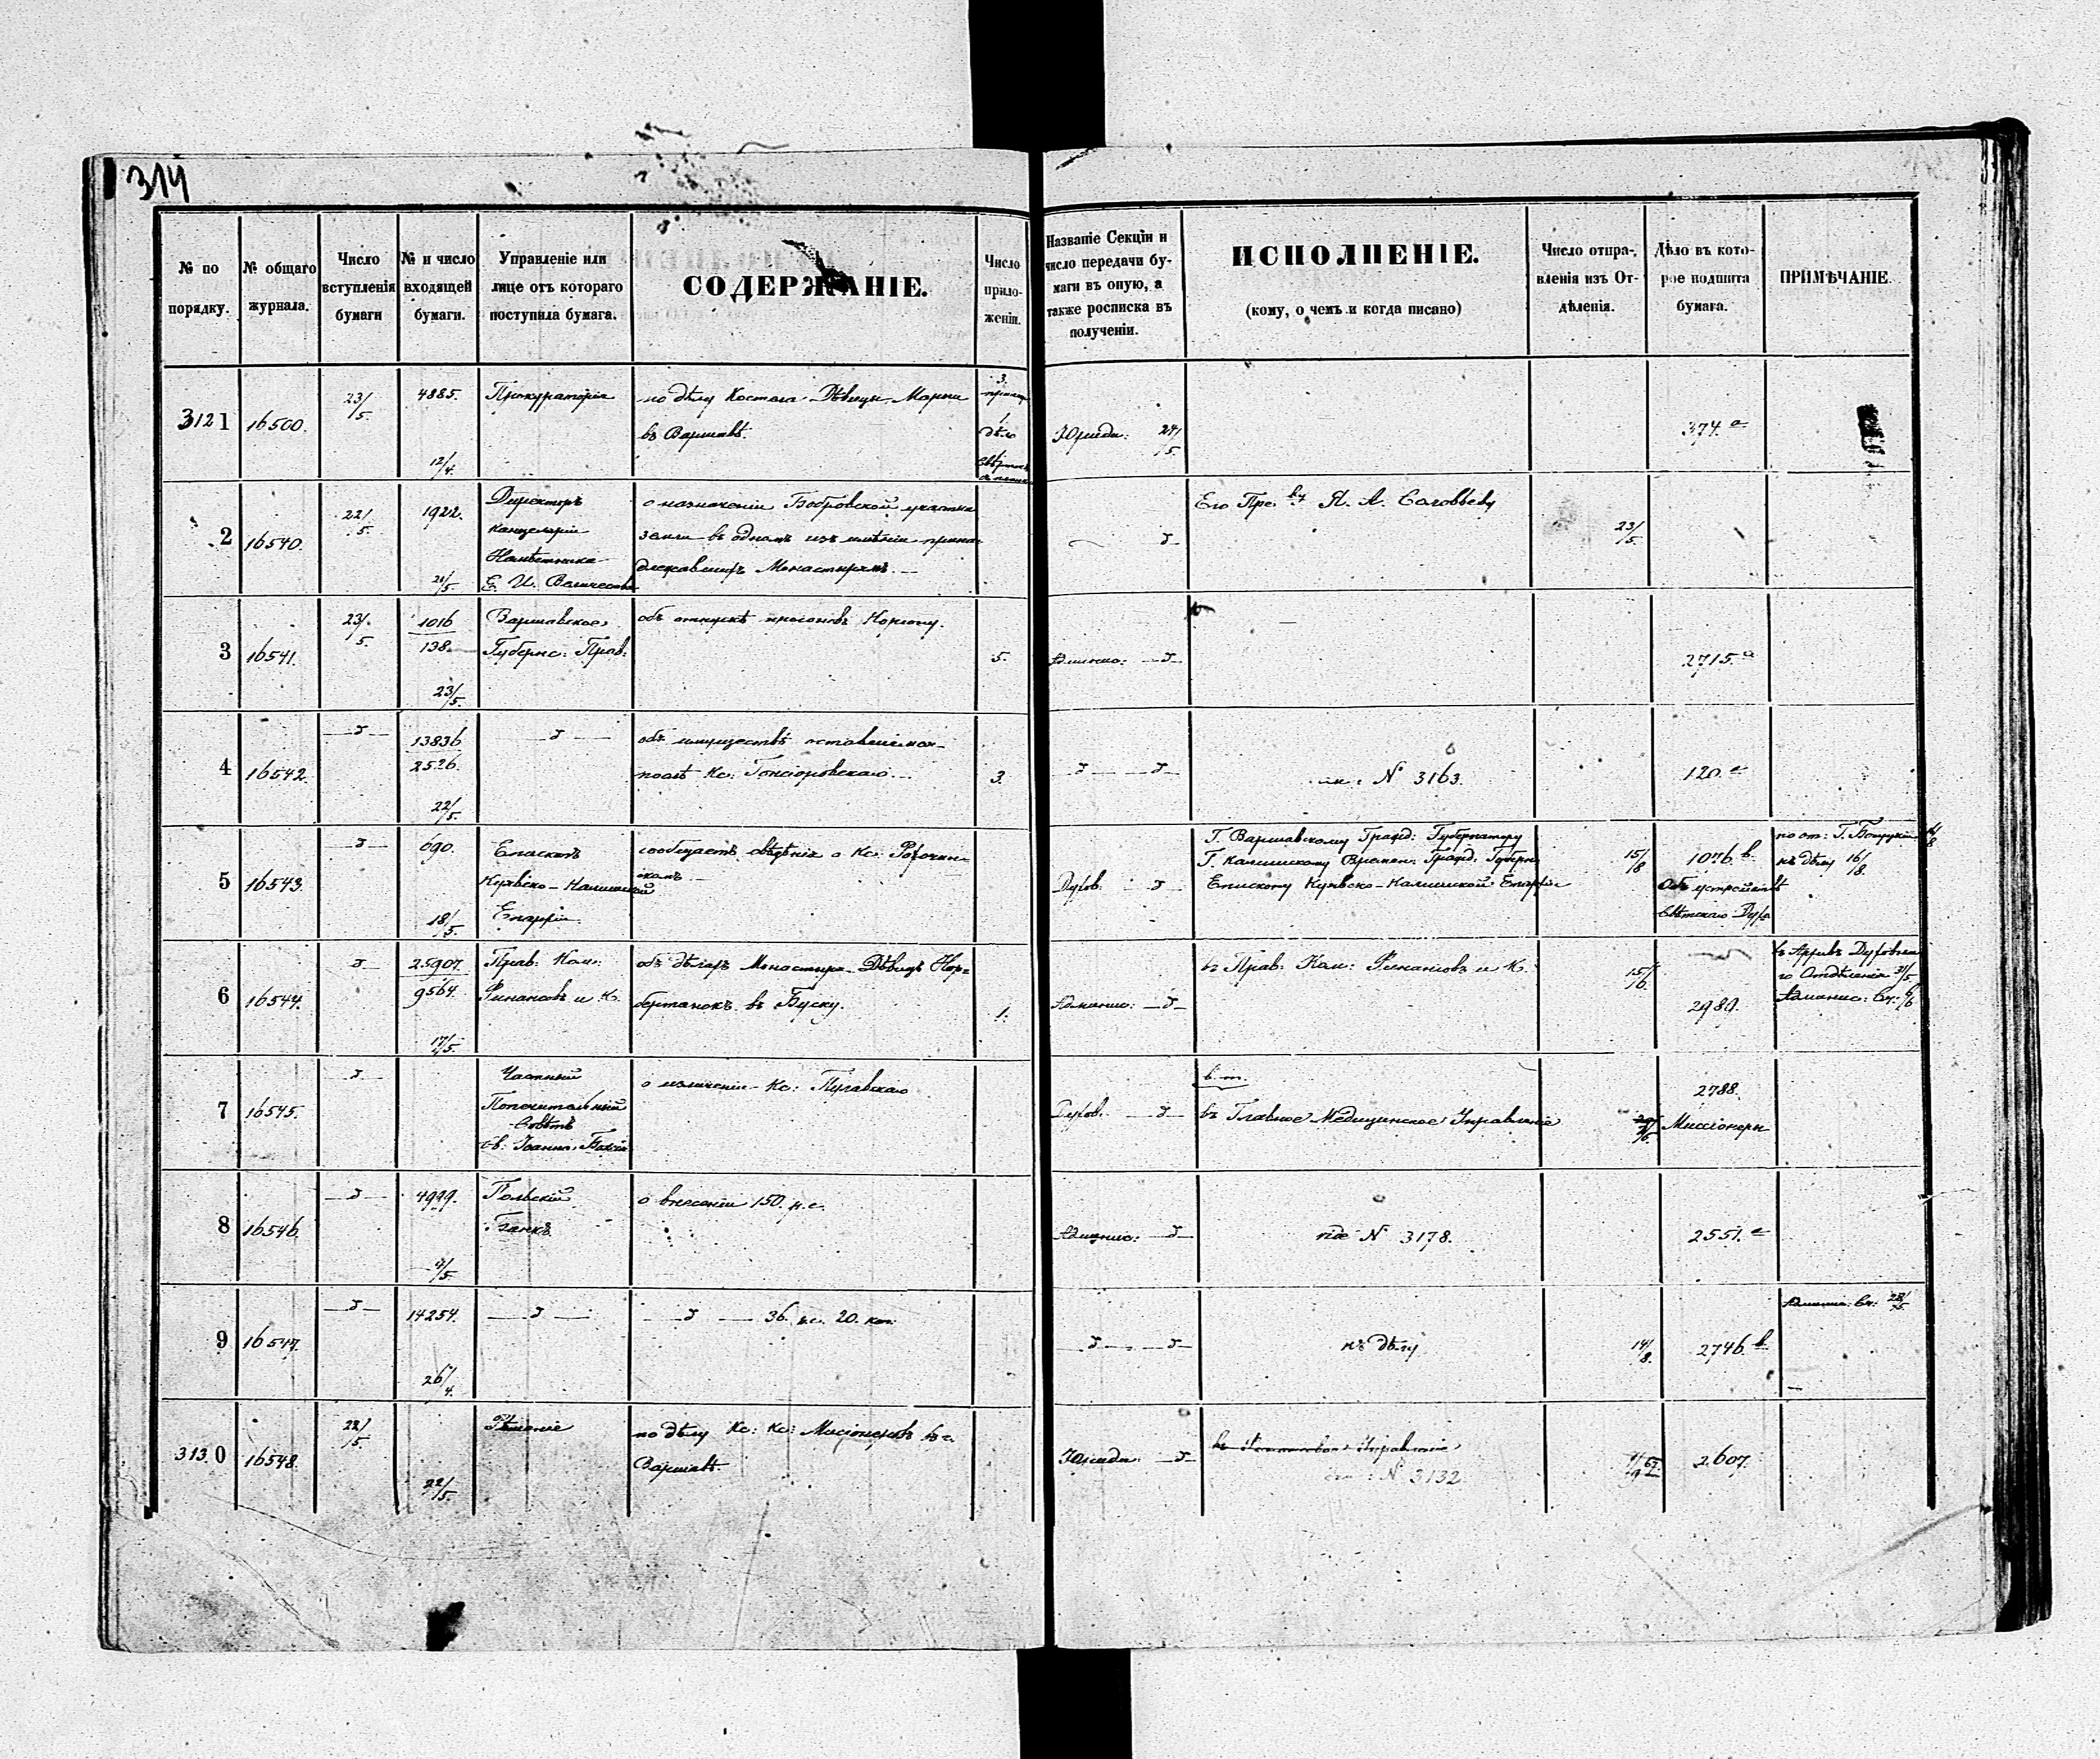 314
№ по порядку.
№ общаго журнала.
Число вступленія бумаги
№ и число входящей бумаги.
Управленіе или лице отъ котораго поступила бумага.
СОДЕРЖАНІЕ.
Число приложеній.
Названіе Секціи и число передачи бумаги въ оную, а также росписка въ полученіи.
ИСПОЛНЕНІЕ.
(кому, о чемъ и когда писано)
Число отправленія изъ Отдѣленія.
Дѣло въ которое подшита бумага.
ПРИМѢЧАНІЕ.
3121 16500. 23/5. 4885. Прокураторія по дѣлу Костела Дѣвицы Маріи 3.
въ Варшавѣ. 1 дѣло Юриди: 24/5. 374.а
12/4.
2 16540. 22/5. 1922. Директоръ о назначеніи Бобровской участка Его Пре.ву Я. А. Соловьеву
Канцеляріи земли въ одномъ изъ имѣній прина- 23/5.
Намѣстника длежавшихъ Монастырямъ.
21/5. Е. И. Величества
3 16541. 23/5. 1016 Варшавское объ отпускѣ прогоновъ
138. Губернс: Прав: 5. Админис: 2715.а
23/5.
4 16542. 13836 объ имуществѣ
2526. послѣ Кс: Гонсіоровскаго 3. № 3163. 120.
22/5.
5 16543. 690. Епископъ сообщаетъ свѣдѣнія о Кс: Г. Варшавскому Гражд: Губернатору
Куявско-Калишской Духов. Г. Калишскому Времен: Гражд: Губерн 15/8 1076.в. къ дѣлу 16/8.
18/5. Епархіи Епископу Куявско-Калишской Епархіи Объ устройствѣ
Свѣтскаго Дух.
6 16544. 25907. Прав: Ком: объ дѣлахъ Монастыря Дѣвицъ Нор- въ Прав: Ком: Финансовъ и К. въ Архивъ Духовна
9564. Финансовъ и К. бертанокъ въ Буску. 1. Админис: 15/6. 2989. го Отдѣленія 31/5
17/5.
7 16545. Частный о излеченіи Кс: в. т. 2788.
Попечительный Духов. въ Главное Медицинское Управленіе Миссіонеры
Совѣтъ
Св. Іоанна Божія
8 16546. 4999. Польскій о внесеніи 150. р.с.
Банкъ Админис: vide № 3178. 2551.
9 16547. 14254. 36. р.с. 20. коп. къ дѣлу 14/8. 2746.в
26/4.
3130 16548. 22/5. по дѣлу Кс: Кс: Мисіонеровъ въ г.
Варшавѣ. Юриди: № 3132 2607.
22/5.